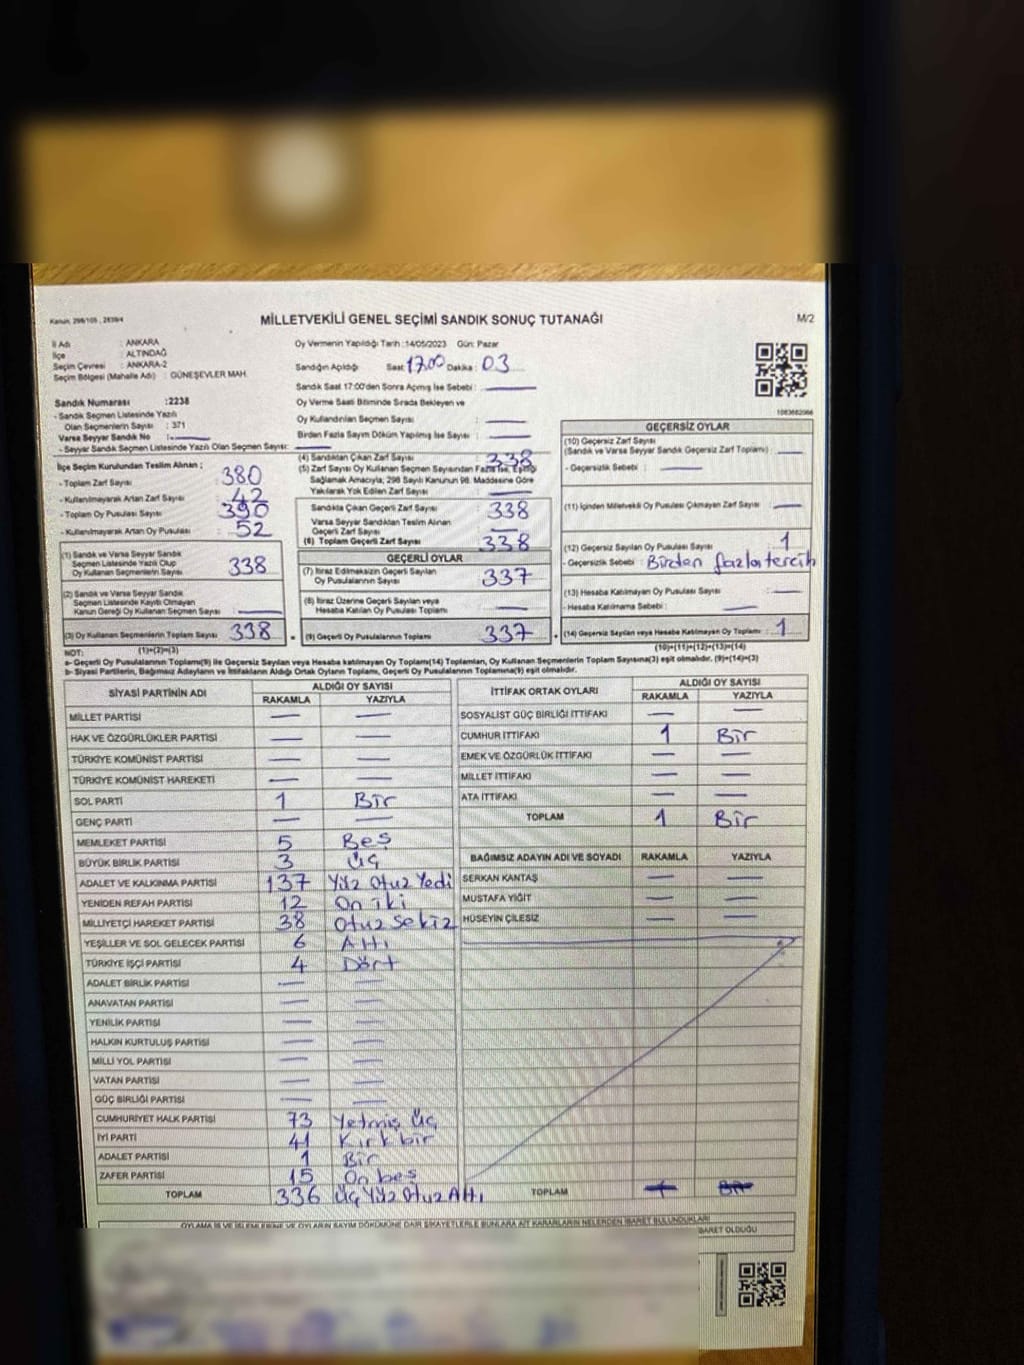 Kanun: 298/105 , 2839/4
MİLLETVEKİLİ GENEL SEÇİMİ SANDIK SONUÇ TUTANAĞI
M/2
İl Adı : ANKARA
İlçe : ALTINDAĞ
Seçim Çevresi : ANKARA-2
Seçim Bölgesi (Mahalle Adı) : GÜNEŞEVLER MAH.
Sandık Numarası :2238
- Sandık Seçmen Listesinde Yazılı
Olan Seçmenlerin Sayısı : 371
Varsa Seyyar Sandık No :
- Seyyar Sandık Seçmen Listesinde Yazılı Olan Seçmen Sayısı:
Oy Vermenin Yapıldığı Tarih :14/05/2023 Gün: Pazar
Sandığın Açıldığı Saat : 17.00 Dakika : 03
Sandık Saat 17:00'den Sonra Açmış İse Sebebi :
Oy Verme Saati Bitiminde Sırada Bekleyen ve
Oy Kullandırılan Seçmen Sayısı :
Birden Fazla Sayım Döküm Yapılmış İse Sayısı :
İlçe Seçim Kurulundan Teslim Alınan ;
- Toplam Zarf Sayısı : 380
- Kullanılmayarak Artan Zarf Sayısı : 42
- Toplam Oy Pusulası Sayısı : 390
- Kullanılmayarak Artan Oy Pusulası : 52
(1) Sandık ve Varsa Seyyar Sandık
Seçmen Listesinde Yazılı Olup
Oy Kullanan Seçmenlerin Sayısı : 338
(2) Sandık ve Varsa Seyyar Sandık
Seçmen Listesinde Kayıtlı Olmayan
Kanun Gereği Oy Kullanan Seçmen Sayısı :
(3) Oy Kullanan Seçmenlerin Toplam Sayısı : 338
(1)+(2)=(3)
(4) Sandıktan Çıkan Zarf Sayısı : 338
(5) Zarf Sayısı Oy Kullanan Seçmen Sayısından Fazla İse, Eşitliği
Sağlamak Amacıyla; 298 Sayılı Kanunun 98. Maddesine Göre
Yakılarak Yok Edilen Zarf Sayısı :
Sandıkta Çıkan Geçerli Zarf Sayısı : 338
Varsa Seyyar Sandıktan Teslim Alınan
Geçerli Zarf Sayısı :
(6) Toplam Geçerli Zarf Sayısı : 338
GEÇERLİ OYLAR
(7) İtiraz Edilmeksizin Geçerli Sayılan
Oy Pusulalarının Sayısı : 337
(8) İtiraz Üzerine Geçerli Sayılan veya
Hesaba Katılan Oy Pusulası Toplamı :
(9) Geçerli Oy Pusulalarının Toplamı : 337
1083682066
GEÇERSİZ OYLAR
(10) Geçersiz Zarf Sayısı
(Sandık ve Varsa Seyyar Sandık Geçersiz Zarf Toplamı) :
- Geçersizlik Sebebi :
(11) İçinden Milletvekili Oy Pusulası Çıkmayan Zarf Sayısı :
(12) Geçersiz Sayılan Oy Pusulası Sayısı : 1
- Geçersizlik Sebebi : Birden fazla tercih
(13) Hesaba Katılmayan Oy Pusulası Sayısı :
- Hesaba Katılmama Sebebi :
(14) Geçersiz Sayılan veya Hesaba Katılmayan Oy Toplamı : 1
(10)+(11)+(12)+(13)=(14)
NOT:
a- Geçerli Oy Pusulalarının Toplamı(9) ile Geçersiz Sayılan veya Hesaba katılmayan Oy Toplamı(14) Toplamları, Oy Kullanan Seçmenlerin Toplam Sayısına(3) eşit olmalıdır. (9)+(14)=(3)
b- Siyasi Partilerin, Bağımsız Adayların ve İttifakların Aldığı Ortak Oyların Toplamı, Geçerli Oy Pusulalarının Toplamına(9) eşit olmalıdır.
SİYASİ PARTİNİN ADI ALDIĞI OY SAYISI
RAKAMLA YAZIYLA
MİLLET PARTİSİ
HAK VE ÖZGÜRLÜKLER PARTİSİ
TÜRKİYE KOMÜNİST PARTİSİ
TÜRKİYE KOMÜNİST HAREKETİ
SOL PARTİ 1 Bir
GENÇ PARTİ
MEMLEKET PARTİSİ 5 Beş
BÜYÜK BİRLİK PARTİSİ 3 Üç
ADALET VE KALKINMA PARTİSİ 137 Yüz Otuz Yedi
YENİDEN REFAH PARTİSİ 12 On iki
MİLLİYETÇİ HAREKET PARTİSİ 38 Otuz Sekiz
YEŞİLLER VE SOL GELECEK PARTİSİ 6 Altı
TÜRKİYE İŞÇİ PARTİSİ 4 Dört
ADALET BİRLİK PARTİSİ
ANAVATAN PARTİSİ
YENİLİK PARTİSİ
HALKIN KURTULUŞ PARTİSİ
MİLLİ YOL PARTİSİ
VATAN PARTİSİ
GÜÇ BİRLİĞİ PARTİSİ
CUMHURİYET HALK PARTİSİ 73 Yetmiş Üç
İYİ PARTİ 41 Kırk bir
ADALET PARTİSİ 1 Bir
ZAFER PARTİSİ 15 On beş
TOPLAM 336 Üç Yüz Otuz Altı
İTTİFAK ORTAK OYLARI ALDIĞI OY SAYISI
RAKAMLA YAZIYLA
SOSYALİST GÜÇ BİRLİĞİ İTTİFAKI
CUMHUR İTTİFAKI 1 Bir
EMEK VE ÖZGÜRLÜK İTTİFAKI
MİLLET İTTİFAKI
ATA İTTİFAKI
TOPLAM 1 Bir
BAĞIMSIZ ADAYIN ADI VE SOYADI RAKAMLA YAZIYLA
SERKAN KANTAŞ
MUSTAFA YİĞİT
HÜSEYİN ÇİLESİZ
TOPLAM
OYLAMA İŞ VE İŞLEMLERİNE VE OYLARIN SAYIM DÖKÜMÜNE DAİR ŞİKAYETLERLE BUNLARA AİT KARARLARIN NELERDEN İBARET BULUNDUKLARI
BARET OLDUĞU